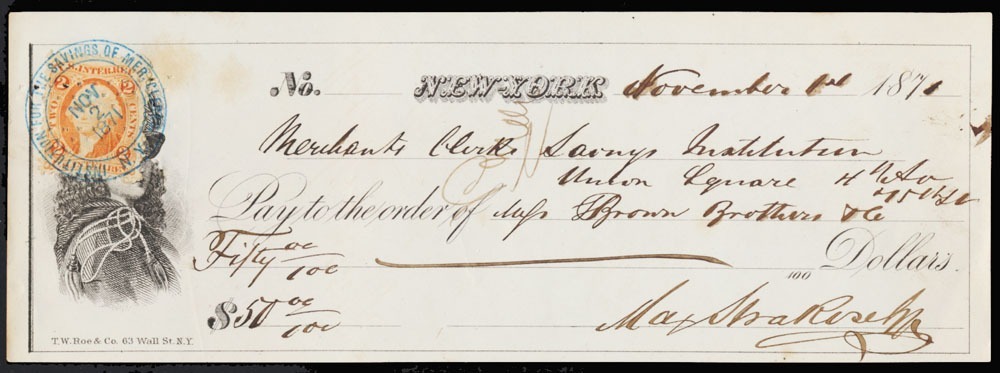 No. NEW-YORK November 1st 1871
Merchants Clerks Savings Institution
Union Square 4th Av
Pay to the order of Mess Brown Brothers & Co
Fifty 00/100 100 Dollars.
$50 00/100 Max Strakosch
T.W. Roe & Co. 63 Wall St. N.Y.
FOR THE SAVINGS OF MERCHANTS
U.S. INTER. REV.
2 2
TWO CENTS
NOV.
2
1871
N.Y.